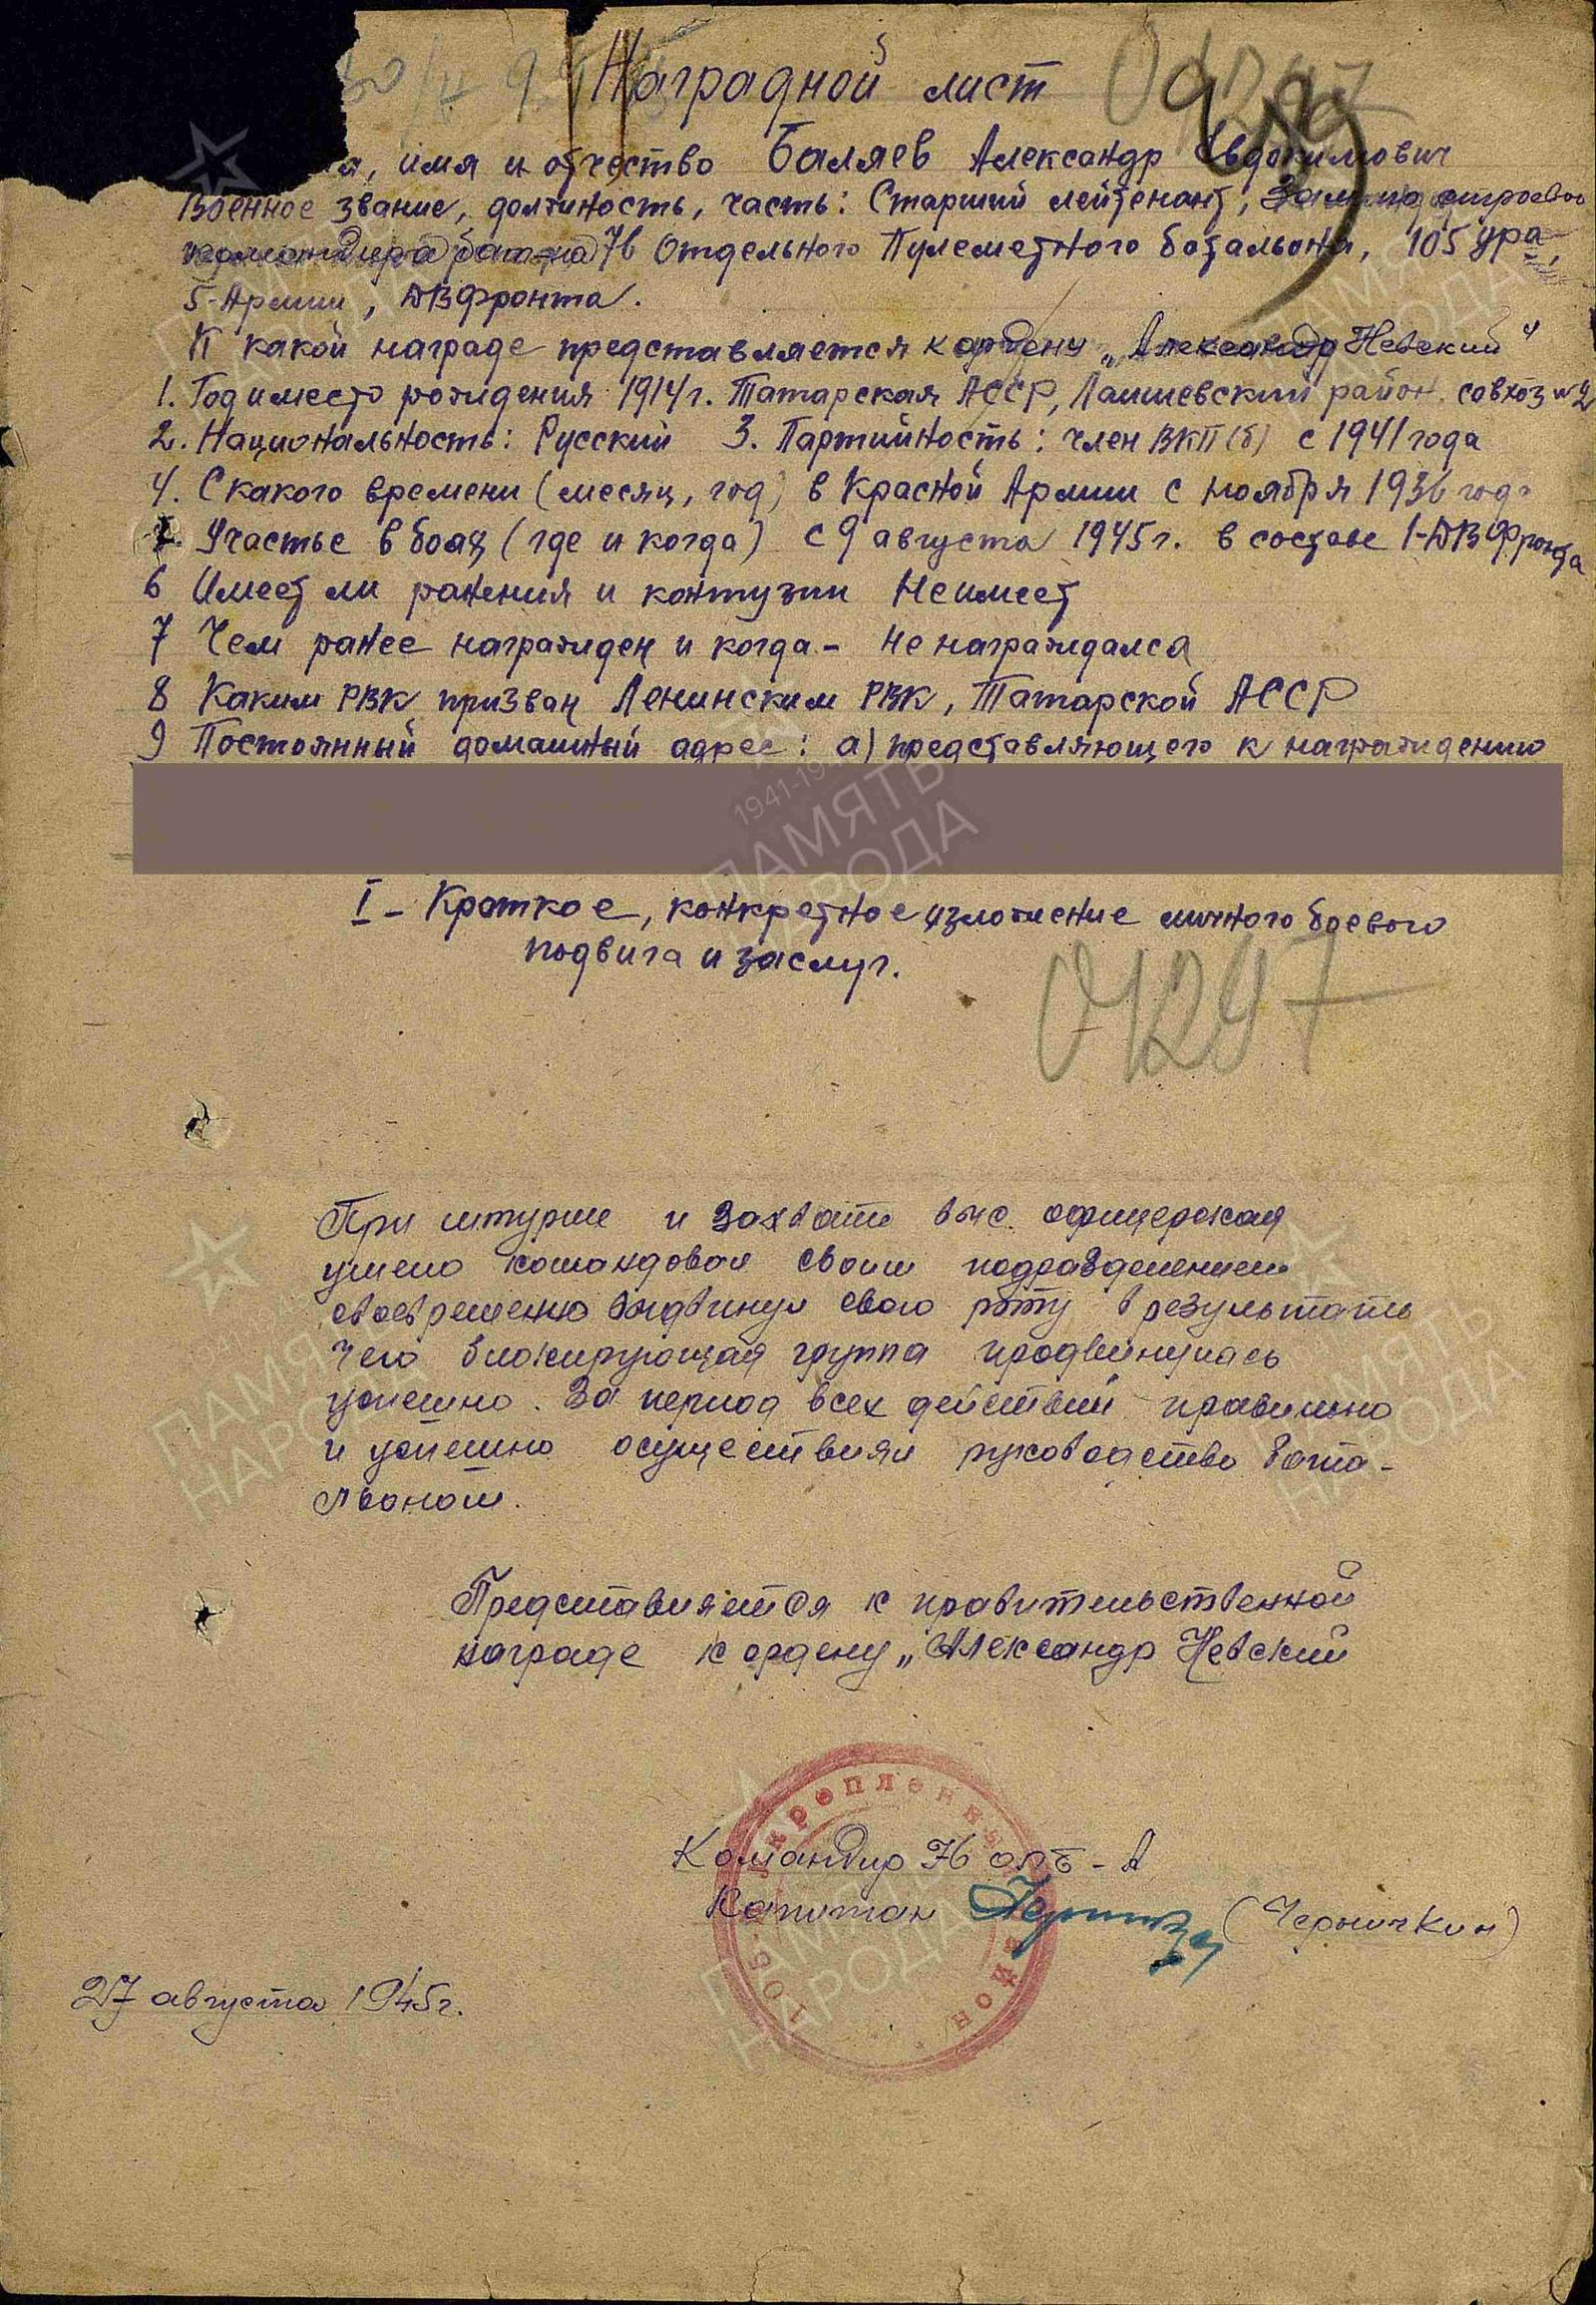 Наградной лист
я, имя и отчество Баляев Александр Евдокимович
Военное звание, должность, часть: Старший лейтенант, Зам по строевой
командира бат-на 76 Отдельного Пулеметного батальона, 105 ура,
5-Армии, ДВФронта.
К какой награде представляется к ордену „Александр Невский"
1. Год и место рождения 1914 г. Татарская АССР, Лаишевский район. совхоз №2
2. Национальность: Русский 3. Партийность: член ВКП(б) с 1941 года
4. С какого времени (месяц, год) в Красной Армии с ноября 1936 год
Участье в боях (где и когда) с 9 августа 1945 г. в составе 1-ДВФронта
6 Имеет ли ранения и контузии Не имеет
7 Чем ранее награжден и когда - не награждался
8 Каким РВК призван Ленинским РВК, Татарской АССР
9 Постоянный домашный адрес: а) представляющего к награждению
I - Краткое, конкретное изложение личного боевого
подвига и заслуг.
01297
При штурме и захвате выс. офицерская
умело командовал своим подразделением
своевременно выдвинул свою роту в результате
чего блокирующая группа продвинулась
успешно. За период всех действий правильно
и успешно осуществлял руководство бата-
льоном.
Представляется к правительственной
награде к ордену „Александр Невский
Командир 76 опб-а
Капитан (Черничкин)
27 августа 1945 г.
105-й укрепленный район
ПАМЯТЬ НАРОДА
1941-19